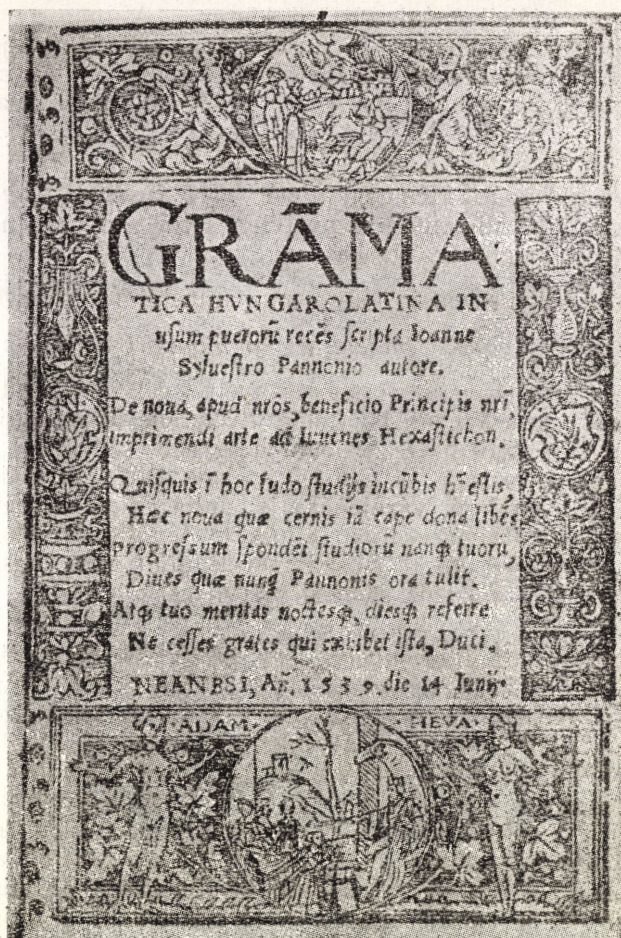 GRÃMA
TICA HVNGAROLATINA IN
usum puerorũ recẽs scripta Ioanne
Syluestro Pannonio autore.
De noua, apud nrõs, beneficio Principis nrĩ,
imprimendi arte ad Iuuenes Hexastichon.
Quisquis ĩ hoc ludo studijs incũbis hẽestis,
Hæc noua quæ cernis iã cape dona libẽs,
progressum spondẽt studiorũ nanq; tuorũ,
Diues quæ nunq̃ Pannonis ora tulit.
Atq; tuo meritas noctesq;, diesq; referre
Ne cesses grates qui exhibet ista, Duci.
NEANESI, Añ. 1539. die 14 Iunij.
·ADAM· ·HEVA·